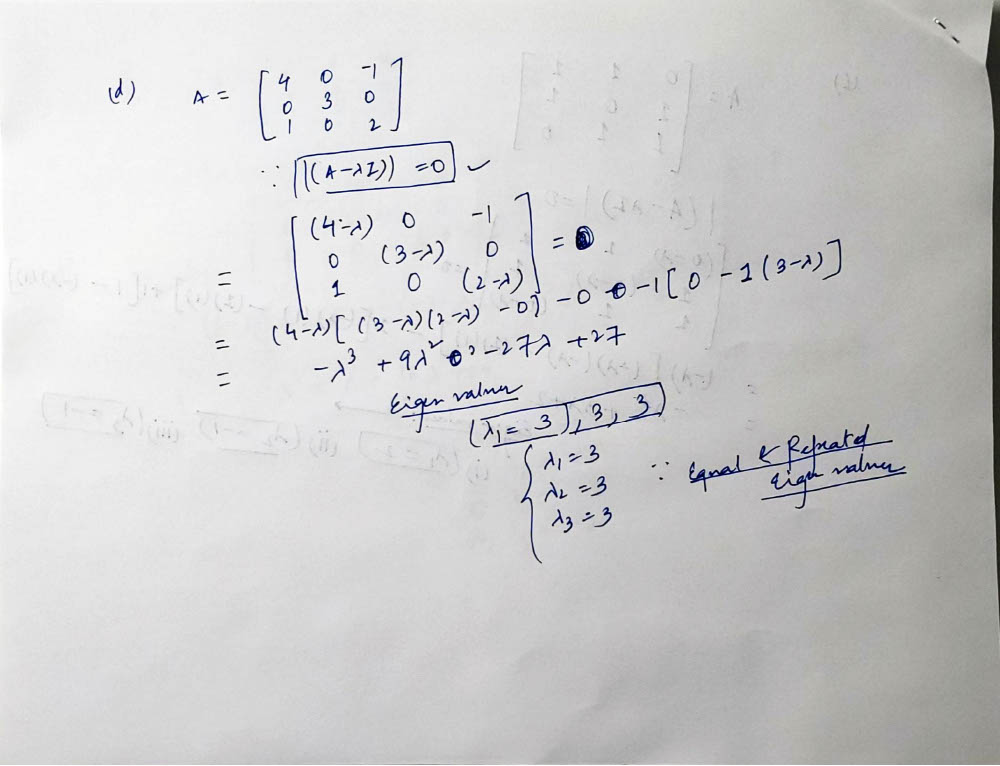 (d) A = [ 4 0 -1
0 3 0
1 0 2 ]
∵ |(A-λI)| = 0 ✓
= [ (4-λ) 0 -1
0 (3-λ) 0
1 0 (2-λ) ] = 0
= (4-λ)[(3-λ)(2-λ) -0] - 0 -1[0 - 1(3-λ)]
= -λ³ + 9λ² - 27λ + 27
Eigen values
(λ₁ = 3), 3, 3)
{ λ₁ = 3
λ₂ = 3
λ₃ = 3
∵ Equal & Repeated
Eigen values